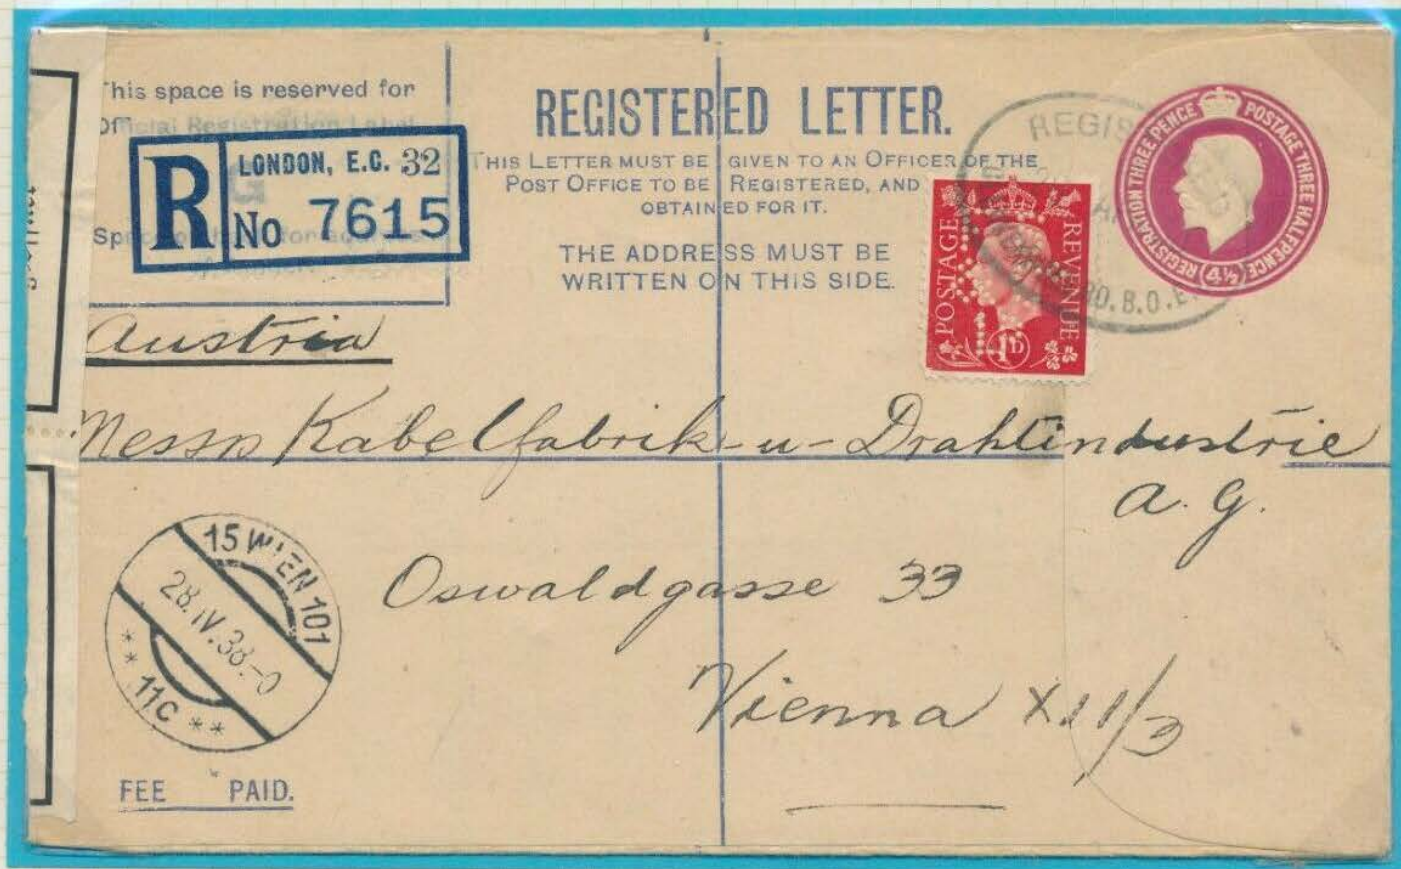 This space is reserved for
Official Registration Label
R
LONDON, E.C. 32
No 7615
REGISTERED LETTER.
THIS LETTER MUST BE GIVEN TO AN OFFICER OF THE
POST OFFICE TO BE REGISTERED, AND
OBTAINED FOR IT.
THE ADDRESS MUST BE
WRITTEN ON THIS SIDE.
REGISTRATION THREE PENCE
POSTAGE THREE HALFPENCE
4½
POSTAGE
REVENUE
1D
RD.B.O.E.
Austria
Messrs Kabelfabrik-u-Drahtindustrie
A.G.
Oswaldgasse 33
Vienna XII/3
15 WIEN 101
28.IV.38.-0
** 11c **
FEE PAID.